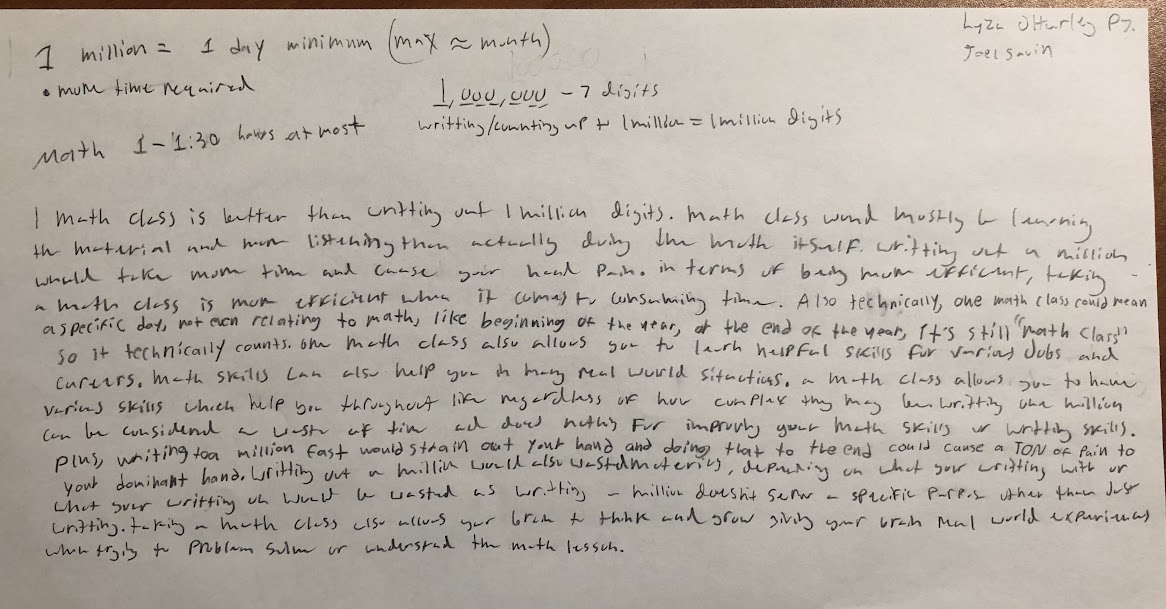 1 million = 1 day minimum (max ≈ month)
P7.
Joel Savin
• more time required
1,000,000 - 7 digits
writting/counting up to 1 million = 1 million digits
Math 1 - 1:30 hours at most
1 math class is better than writting out 1 million digits. Math class would mostly be learning
the material and more listening than actually doing the math itself. writting out a million
would take more time and cause your hand pain. in terms of being more efficient, taking
a math class is more efficient when it comes to consuming time. Also technically, one math class could mean
a specific day, not even relating to math, like beginning of the year, or the end of the year, It's still "math class"
so it technically counts. one math class also allows you to learn helpful skills for various Jobs and
careers. Math skills can also help you in many real world situations. a math class allows you to have
various skills which help you throughout life regardless of how complex they may be. writting one million
can be considered a waste of time and does nothing for improving your math skills or writting skills.
Plus, writing to a million fast would strain out your hand and doing that to the end could cause a TON of Pain to
your dominant hand. writting out a million would also waste materials, depending on what your writting with or
what your writting on would be wasted as writting a million doesn't serve a specific purpose other than Just
writting. taking a math class also allows your brain to think and grow giving your brain real world experiences
when trying to problem solve or understand the math lesson.